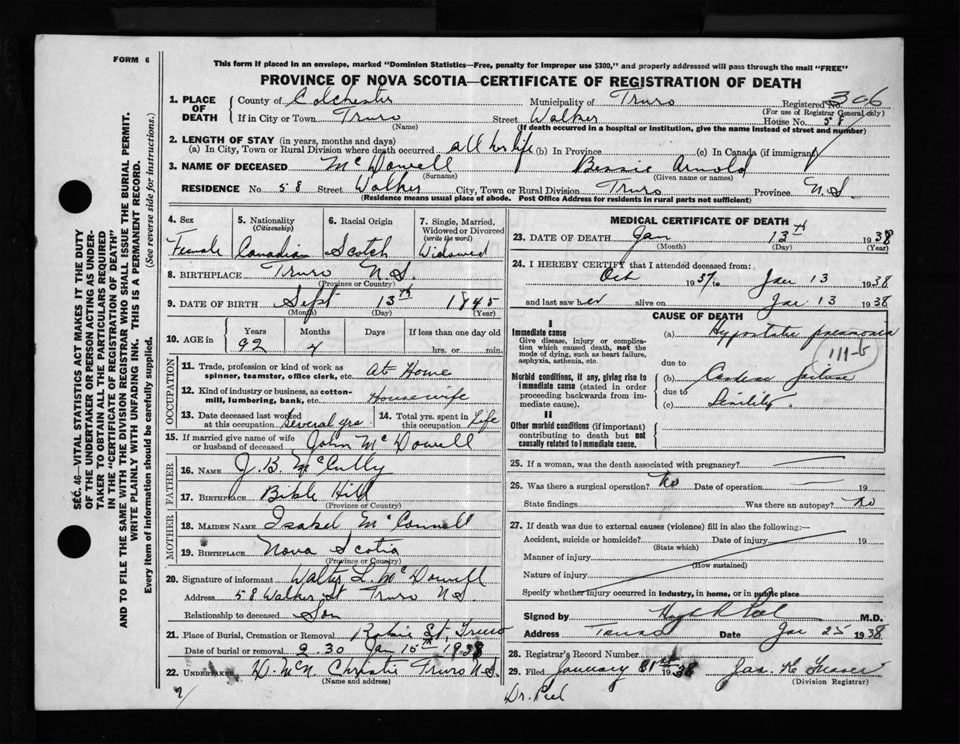 FORM 6
This form if placed in an envelope, marked "Dominion Statistics—Free, penalty for improper use $300," and properly addressed will pass through the mail "FREE"
PROVINCE OF NOVA SCOTIA—CERTIFICATE OF REGISTRATION OF DEATH
1. PLACE OF DEATH
County of Colchester Municipality of Truro Registered No. 306
(For use of Registrar General only)
If in City or Town Truro Street Walker House No. 58
(Name) (If death occurred in a hospital or institution, give the name instead of street and number)
2. LENGTH OF STAY (in years, months and days)
(a) In City, Town or Rural Division where death occurred all her life (b) In Province (c) In Canada (if immigrant)
3. NAME OF DECEASED McDowell Bessie Arnold
(Surname) (Given name or names)
RESIDENCE No. 58 Street Walker City, Town or Rural Division Truro Province N.S.
(Residence means usual place of abode. Post Office Address for residents in rural parts not sufficient)
4. Sex Female
5. Nationality (Citizenship) Canadian
6. Racial Origin Scotch
7. Single, Married, Widowed or Divorced (write the word) Widowed
8. BIRTHPLACE Truro N.S.
(Province or Country)
9. DATE OF BIRTH Sept 13th 1845
(Month) (Day) (Year)
10. AGE in Years Months Days If less than one day old
92 4 hrs. or min.
OCCUPATION
11. Trade, profession or kind of work as spinner, teamster, office clerk, etc. At Home
12. Kind of industry or business, as cotton-mill, lumbering, bank, etc. Housewife
13. Date deceased last worked at this occupation Several yrs
14. Total yrs. spent in this occupation Life
15. If married give name of wife or husband of deceased John McDowell
FATHER
16. Name J. B. McCully
17. Birthplace Bible Hill
(Province or Country)
MOTHER
18. Maiden Name Isabel McConnell
19. Birthplace Nova Scotia
(Province or Country)
20. Signature of informant Walter L. McDowell
Address 58 Walker St Truro N.S.
Relationship to deceased Son
21. Place of Burial, Cremation or Removal Robie St, Truro
Date of burial or removal 2.30 Jan 15th 1938
22. Undertaker D. McN Christie Truro N.S.
(Name and address)
MEDICAL CERTIFICATE OF DEATH
23. DATE OF DEATH Jan 13th 1938
(Month) (Day) (Year)
24. I HEREBY CERTIFY that I attended deceased from:
Oct 1937 to Jan 13 1938
and last saw her alive on Jan 13 1938
CAUSE OF DEATH
I
Immediate cause (a) Hypostatic pneumonia
Give disease, injury or complication which caused death, not the mode of dying, such as heart failure, asphyxia, asthenia, etc.
111-b
due to
Morbid conditions, if any, giving rise to immediate cause (stated in order proceeding backwards from immediate cause).
(b) Cardiac failure
due to
(c) Senility.
II
Other morbid conditions (if important) contributing to death but not causally related to immediate cause.
25. If a woman, was the death associated with pregnancy?
26. Was there a surgical operation? No Date of operation 19
State findings Was there an autopsy? No
27. If death was due to external causes (violence) fill in also the following:—
Accident, suicide or homicide? Date of injury 19
(State which)
Manner of injury
(How sustained)
Nature of injury
Specify whether injury occurred in industry, in home, or in public place
Signed by M.D.
Address Truro Date Jan 25 1938
28. Registrar's Record Number
29. Filed January 31st 1938 Jas. H. Fraser
(Division Registrar)
Dr. Peel
SEC. 46—VITAL STATISTICS ACT MAKES IT THE DUTY
OF THE UNDERTAKER OR PERSON ACTING AS UNDER-
TAKER TO OBTAIN ALL THE PARTICULARS REQUIRED
IN THE "CERTIFICATE OF REGISTRATION OF DEATH"
AND TO FILE THE SAME WITH THE DIVISION REGISTRAR WHO SHALL ISSUE THE BURIAL PERMIT.
WRITE PLAINLY WITH UNFADING INK. THIS IS A PERMANENT RECORD.
Every item of information should be carefully supplied. (See reverse side for instructions.)